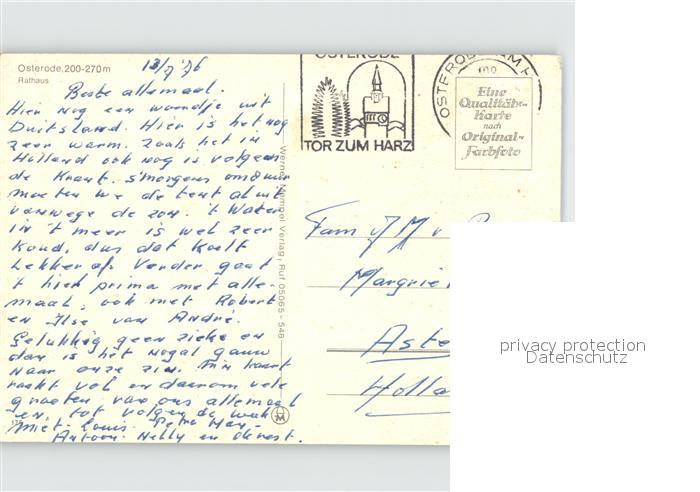 Osterode. 200-270 m
Rathaus
13/7 '76
Beste allemaal.
Hier nog een woordje uit
Duitsland. Hier is het nog
zeer warm. Zoals het in
Holland ook nog is volgens
de krant. s'morgens om 8 uur
moeten we de tent al uit
vanwege de zon. 't Water
in 't meer is wel zeer
koud, dus dat koelt
lekker af. Verder gaat
't hier prima met alle-
maal, ook met Robert
en Ilse van André.
Gelukkig geen zieke en
dan is het nogal gauw
naar onze zin. M'n kaart
raakt vol en daarom vele
groeten van ons allemaal
en tot volgende week
Miet. Louis. Petra
Antoon. Nelly en de rest.
Verlag, Ruf 05065-548
OSTERODE
TOR ZUM HARZ
OSTERODE AM H
Eine
Qualitäts-
Karte
nach
Original-
Farbfoto
Fam J M v
Margrie
Aste
Holla
privacy protection
Datenschutz